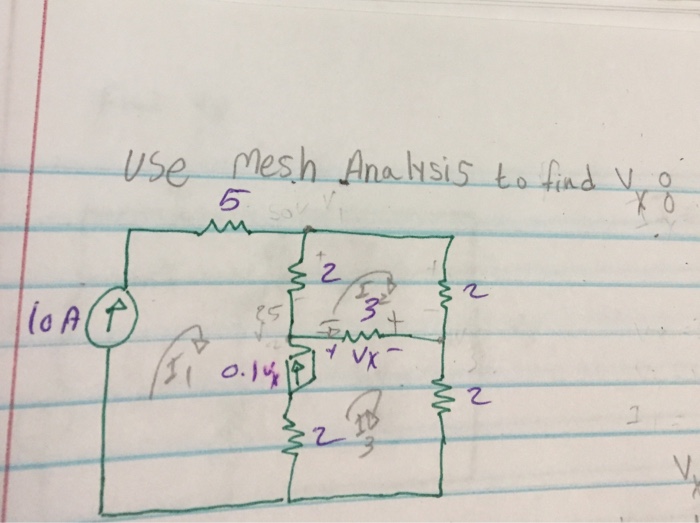 Use Mesh Analysis to find Vx:
5
2
2
3
10 A
+ Vx -
I1
0.1Vx
2
2
I3
Vx